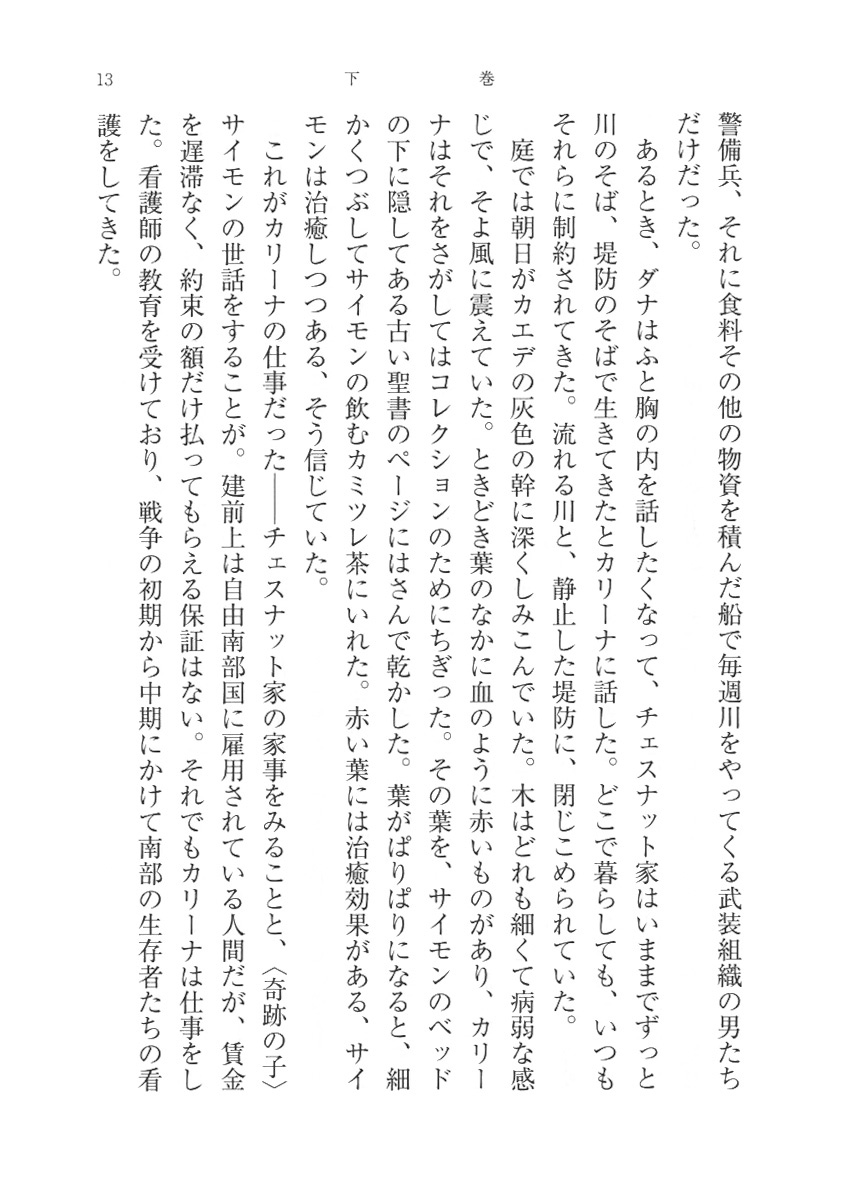 13
下巻
警備兵、それに食料その他の物資を積んだ船で毎週川をやってくる武装組織の男たち
だけだった。
あるとき、ダナはふと胸の内を話したくなって、チェスナット家はいままでずっと
川のそば、堤防のそばで生きてきたとカリーナに話した。どこで暮らしても、いつも
それらに制約されてきた。流れる川と、静止した堤防に、閉じこめられていた。
庭では朝日がカエデの灰色の幹に深くしみこんでいた。木はどれも細くて病弱な感
じで、そよ風に震えていた。ときどき葉のなかに血のように赤いものがあり、カリー
ナはそれをさがしてはコレクションのためにちぎった。その葉を、サイモンのベッド
の下に隠してある古い聖書のページにはさんで乾かした。葉がぱりぱりになると、細
かくつぶしてサイモンの飲むカミツレ茶にいれた。赤い葉には治癒効果がある、サイ
モンは治癒しつつある、そう信じていた。
これがカリーナの仕事だった――チェスナット家の家事をみることと、〈奇跡の子〉
サイモンの世話をすることが。建前上は自由南部国に雇用されている人間だが、賃金
を遅滞なく、約束の額だけ払ってもらえる保証はない。それでもカリーナは仕事をし
た。看護師の教育を受けており、戦争の初期から中期にかけて南部の生存者たちの看
護をしてきた。